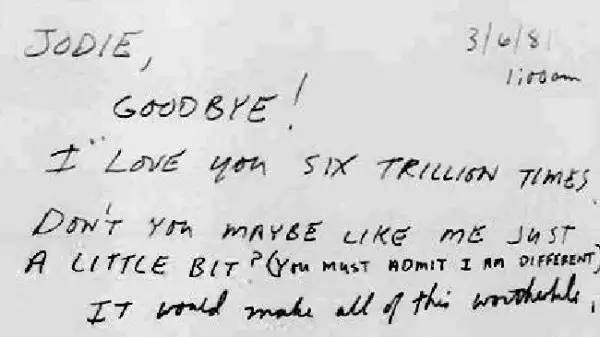 JODIE,
3/6/81
1:00am
GOODBYE!
I LOVE YOU SIX TRILLION TIMES.
DON'T YOU MAYBE LIKE ME JUST
A LITTLE BIT? (YOU MUST ADMIT I AM DIFFERENT)
IT would make all of this